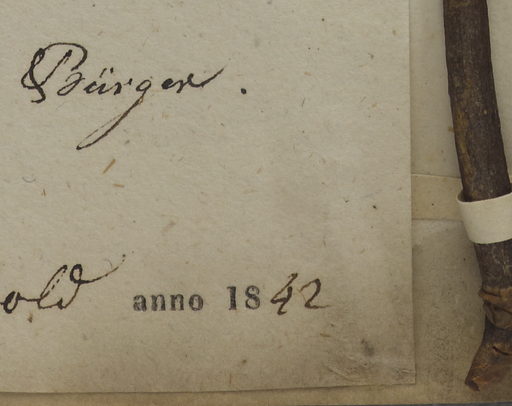 Bürger.
old anno 1842